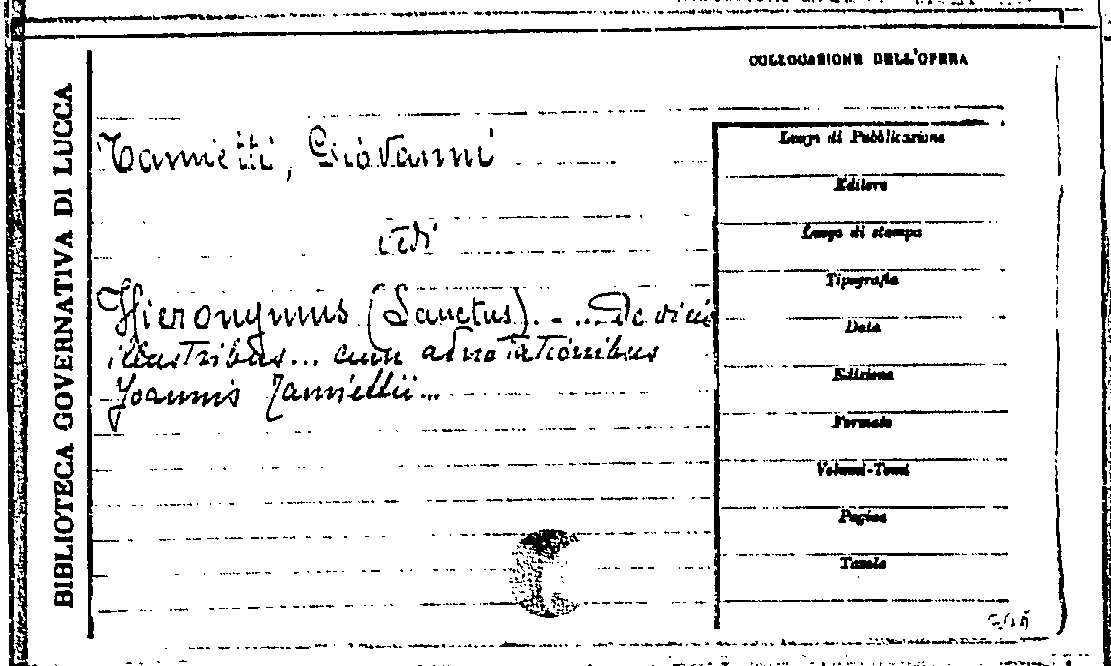 BIBLIOTECA GOVERNATIVA DI LUCCA
COLLOCAZIONE DELL'OPERA
Zannietti, Giovanni
vedi
Hieronymus (Sanctus). - ... De viris
illustribus... cum adnotationibus
Joannis Zanniettii...
Luogo di Pubblicazione
Editore
Luogo di stampa
Tipografia
Data
Edizione
Formato
Volumi-Tomi
Pagine
Tavole